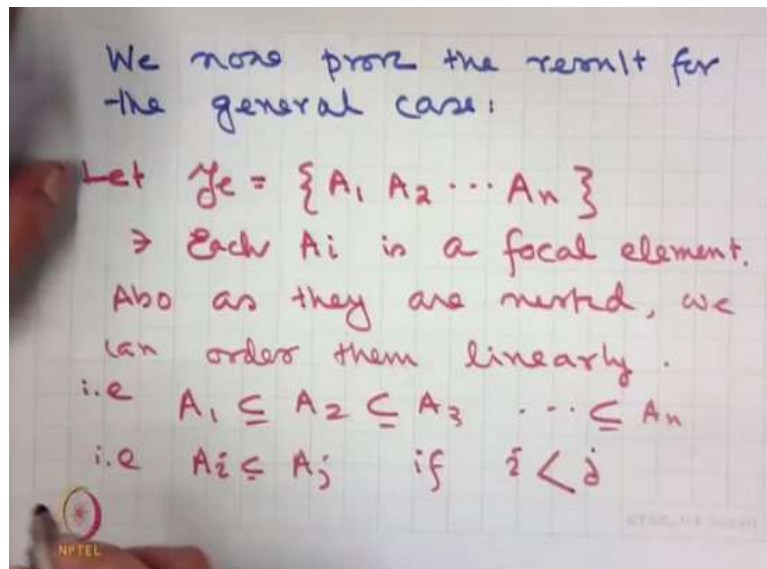 We now prove the result for
the general case:
Let ℱe = { A1 A2 ... An }
∋ Each Ai is a focal element.
Also as they are nested, we
can order them linearly.
i.e A1 ⊆ A2 ⊆ A3 ... ⊆ An
i.e Ai ⊆ Aj if i < j
NPTEL